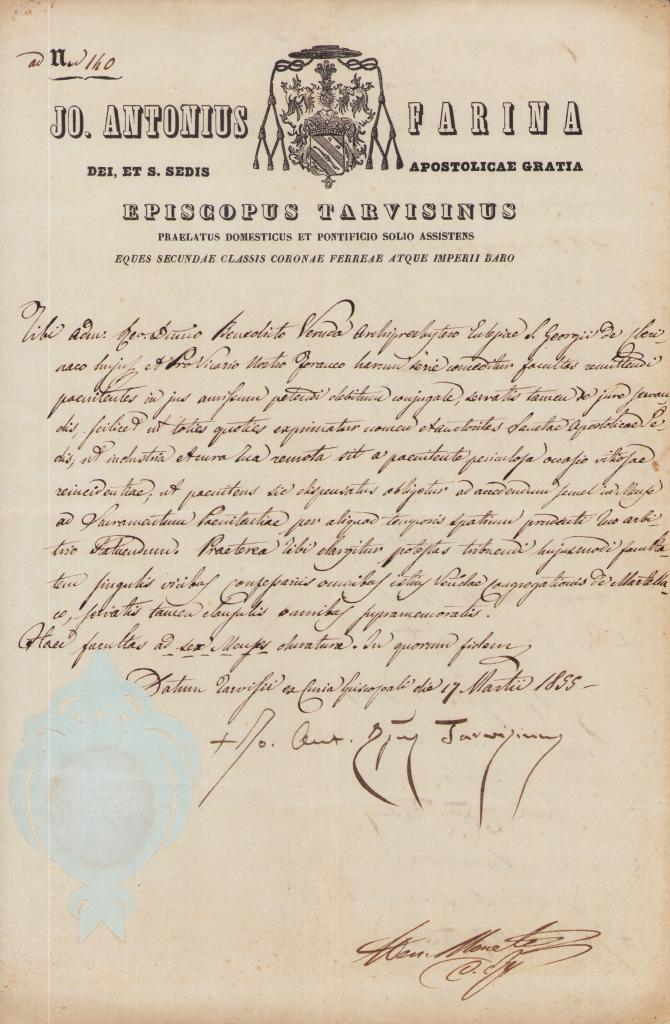 ad N. 140
JO. ANTONIUS FARINA
DEI, ET S. SEDIS APOSTOLICAE GRATIA
EPISCOPUS TARVISINUS
PRAELATUS DOMESTICUS ET PONTIFICIO SOLIO ASSISTENS
EQUES SECUNDAE CLASSIS CORONAE FERREAE ATQUE IMPERII BARO
Tibi adm. Rev. Dmno Benedicto Archipresbytero Eclesiae S. Georgii De
naco hujus et ProVicario Nostro Foraneo harum serie conceditur facultas remittendi
poenitentes in jus amissum petendi debitum conjugale, servatis tamen de jure servan
dis, scilicet ut toties quoties exprimatur nomen et auctoritas Sanctae Apostolicae Se-
dis, ut industria et cura tua remota sit a poenitente periculosa occasio vitiosae
reincidentiae; ut poenitens sic dispensatus obligetur ad accedendum semel in Mense
ad Sacramentum Poenitentiae per aliquod temporis spatium prudenti tuo arbi
trio statuendum. Praeterea tibi elargitur potestas tribuendi hujusmodi faculta-
tem singulis vicibus confessariis omnibus istius Vendae Congregationis de Martella-
co, servatis tamen clausulis omnibus
Haec facultas ad sex Menses duratura. In quorum fidem
Datum Tarvisii ex Curia Episcopali die 17 Martii 1855 -
+ Jo. Ant. Epus Tarvisinus